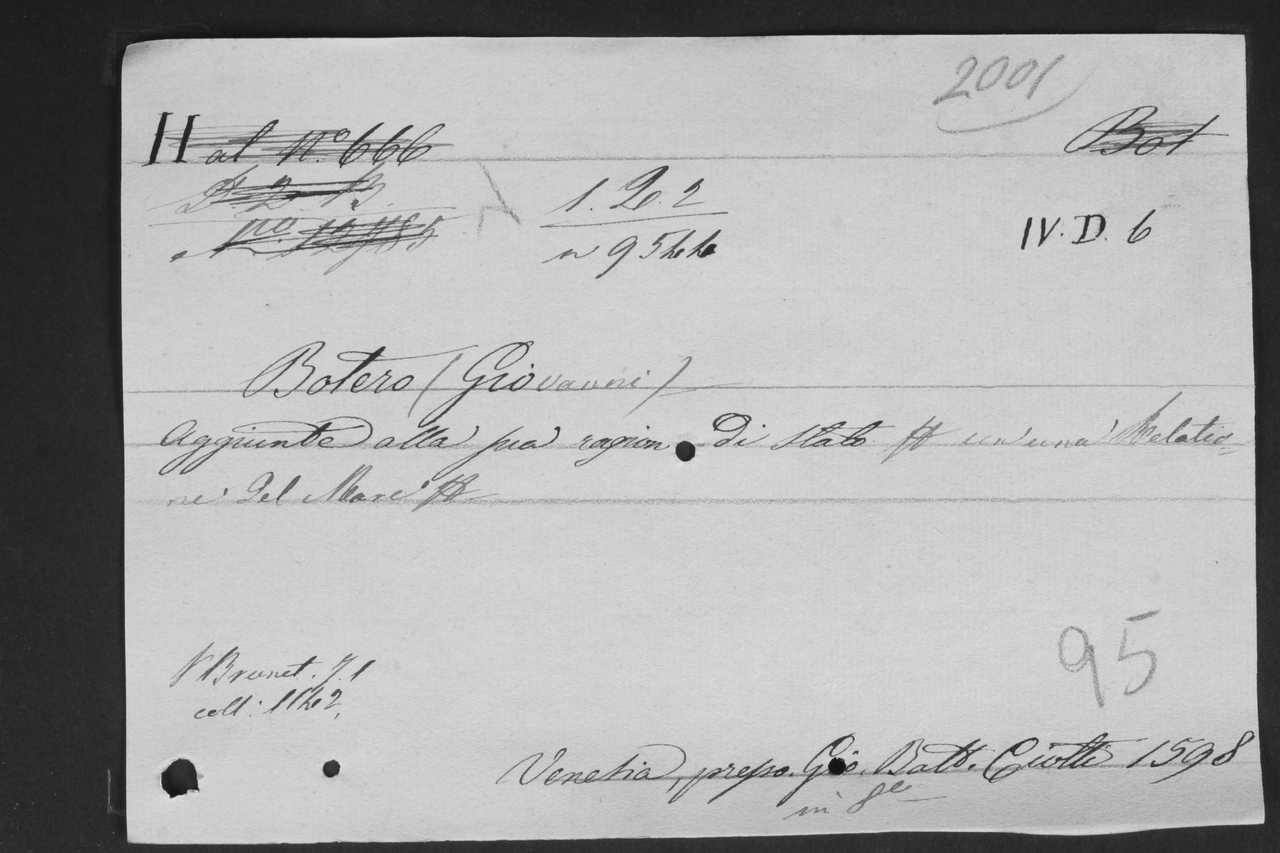 2001
H al No. 666
Bot
1. Q. 2
n 9544
IV. D. 6
Botero (Giovanni)
Aggiunte alla sua ragion di stato con una Relatio=
ne del Mare
V Brunet. T. 1
coll: 1142,
95
Venetia, presso Gio. Batt. Ciotti 1598
in 8o